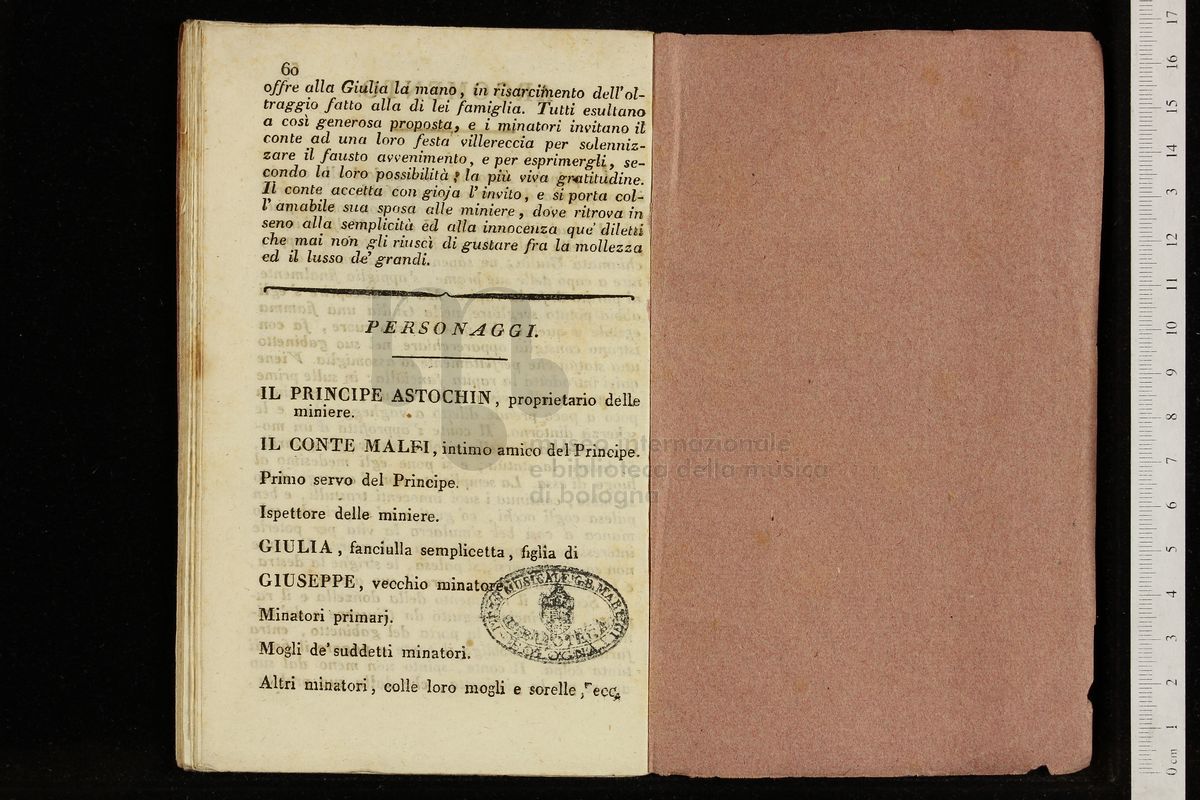 60
offre alla Giulia la mano, in risarcimento dell'ol-
traggio fatto alla di lei famiglia. Tutti esultano
a così generosa proposta, e i minatori invitano il
conte ad una loro festa villereccia per solenniz-
zare il fausto avvenimento, e per esprimergli, se-
condo la loro possibilità, la più viva gratitudine.
Il conte accetta con gioja l'invito, e si porta col-
l'amabile sua sposa alle miniere, dove ritrova in
seno alla semplicità ed alla innocenza que' diletti
che mai non gli riuscì di gustare fra la mollezza
ed il lusso de' grandi.
PERSONAGGI.
IL PRINCIPE ASTOCHIN, proprietario delle
miniere.
IL CONTE MALFI, intimo amico del Principe.
Primo servo del Principe.
Ispettore delle miniere.
GIULIA, fanciulla semplicetta, figlia di
GIUSEPPE, vecchio minatore.
Minatori primarj.
Mogli de' suddetti minatori.
Altri minatori, colle loro mogli e sorelle, ecc.
MUSICALE G.B. MARTINI
BIBLIOTECA
BOLOGNA
museo internazionale
e biblioteca della musica
di bologna
0 cm 1 2 3 4 5 6 7 8 9 10 11 12 13 14 15 16 17